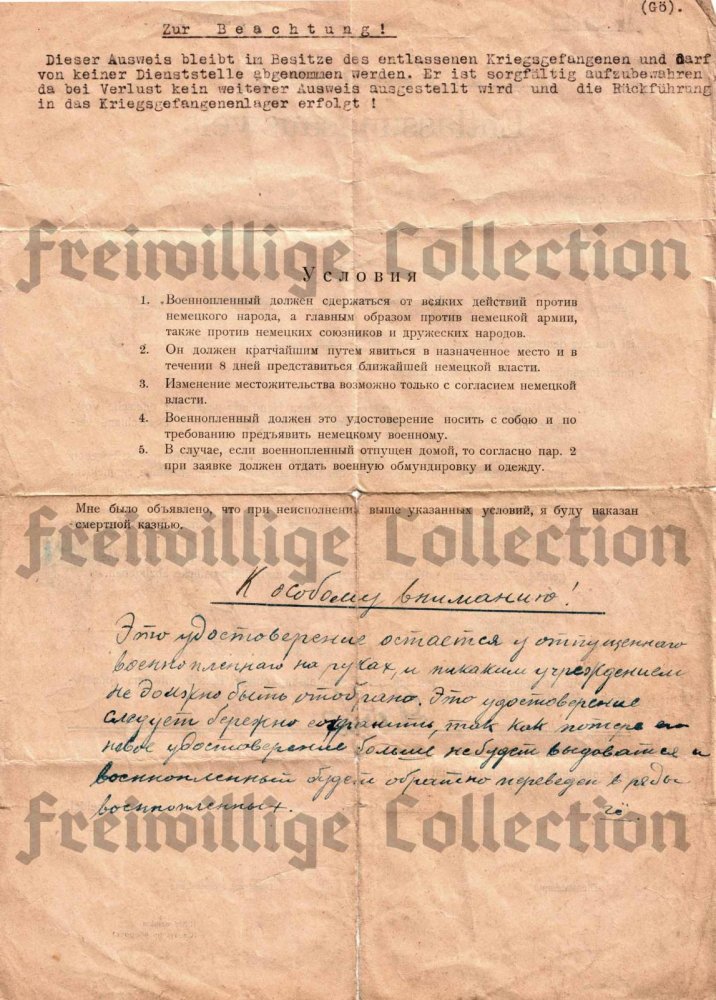 (Gö).
Zur Beachtung!
Dieser Ausweis bleibt im Besitze des entlassenen Kriegsgefangenen und darf
von keiner Dienststelle abgenommen werden. Er ist sorgfältig aufzubewahren
da bei Verlust kein weiterer Ausweis ausgestellt wird und die Rückführung
in das Kriegsgefangenenlager erfolgt !
Freiwillige Collection
Условия
1. Военнопленный должен сдержаться от всяких действий против
немецкого народа, а главным образом против немецкой армии,
также против немецких союзников и дружеских народов.
2. Он должен кратчайшим путем явиться в назначенное место и в
течении 8 дней представиться ближайшей немецкой власти.
3. Изменение местожительства возможно только с согласием немецкой
власти.
4. Военнопленный должен это удостоверение посить с собою и по
требованию предъявить немецкому военному.
5. В случае, если военнопленный отпущен домой, то согласно пар. 2
при заявке должен отдать военную обмундировку и одежду.
Мне было объявлено, что при неисполнении выше указанных условий, я буду наказан
смертной казнью.
Freiwillige Collection
К особому вниманию!
Это удостоверение остается у отпущеннаго
военнопленнаго на руках, и никаким учреждением
не должно быть отобрано. Это удостоверение
следует бережно сохранить, так как потере
новое удостоверение больше небудет выдоватся и
военнопленный будет обратно переведен в ряды
военнопленных. Гё.
Freiwillige Collection